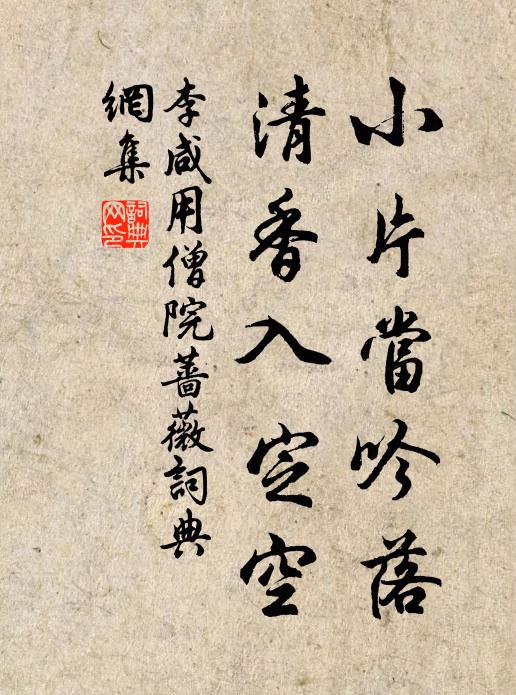 小片當吟落
清香入定空
李咸用僧院薔薇詞典
網集
詞典網印